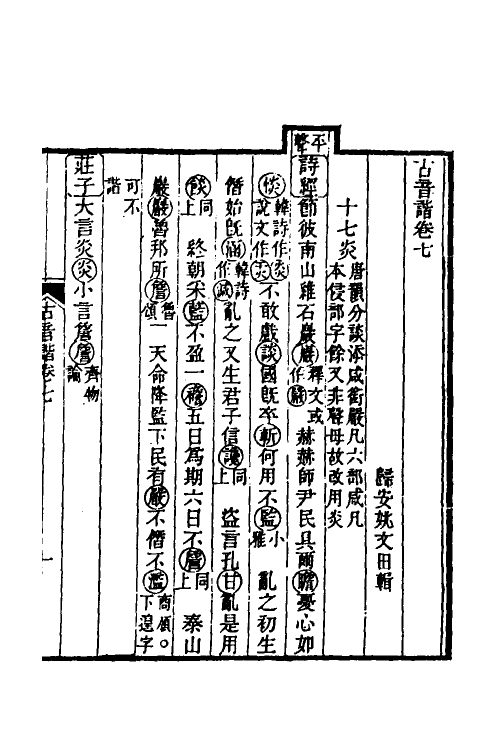 古音諧卷七
歸安姚文田輯
十七炎唐韻分談添咸銜嚴凡六部咸凡
本侵部字餘又非聲母故改用炎
平聲
詩經節彼南山維石巖巖釋文或作嚴赫赫師尹民具爾瞻憂心如
惔韓詩作炎說文作𤆍不敢戲談國既卒斬何用不監小雅亂之初生
僭始既涵韓詩作減亂之又生君子信讒同上盜言孔甘亂是用
餤同上終朝采藍不盈一襜五日為期六日不詹同上泰山
巖巖魯邦所詹魯頌天命降監下民有嚴不僭不濫商頌。下遑字
可不諧
莊子大言炎炎小言詹詹齊物論
古音諧卷七
一